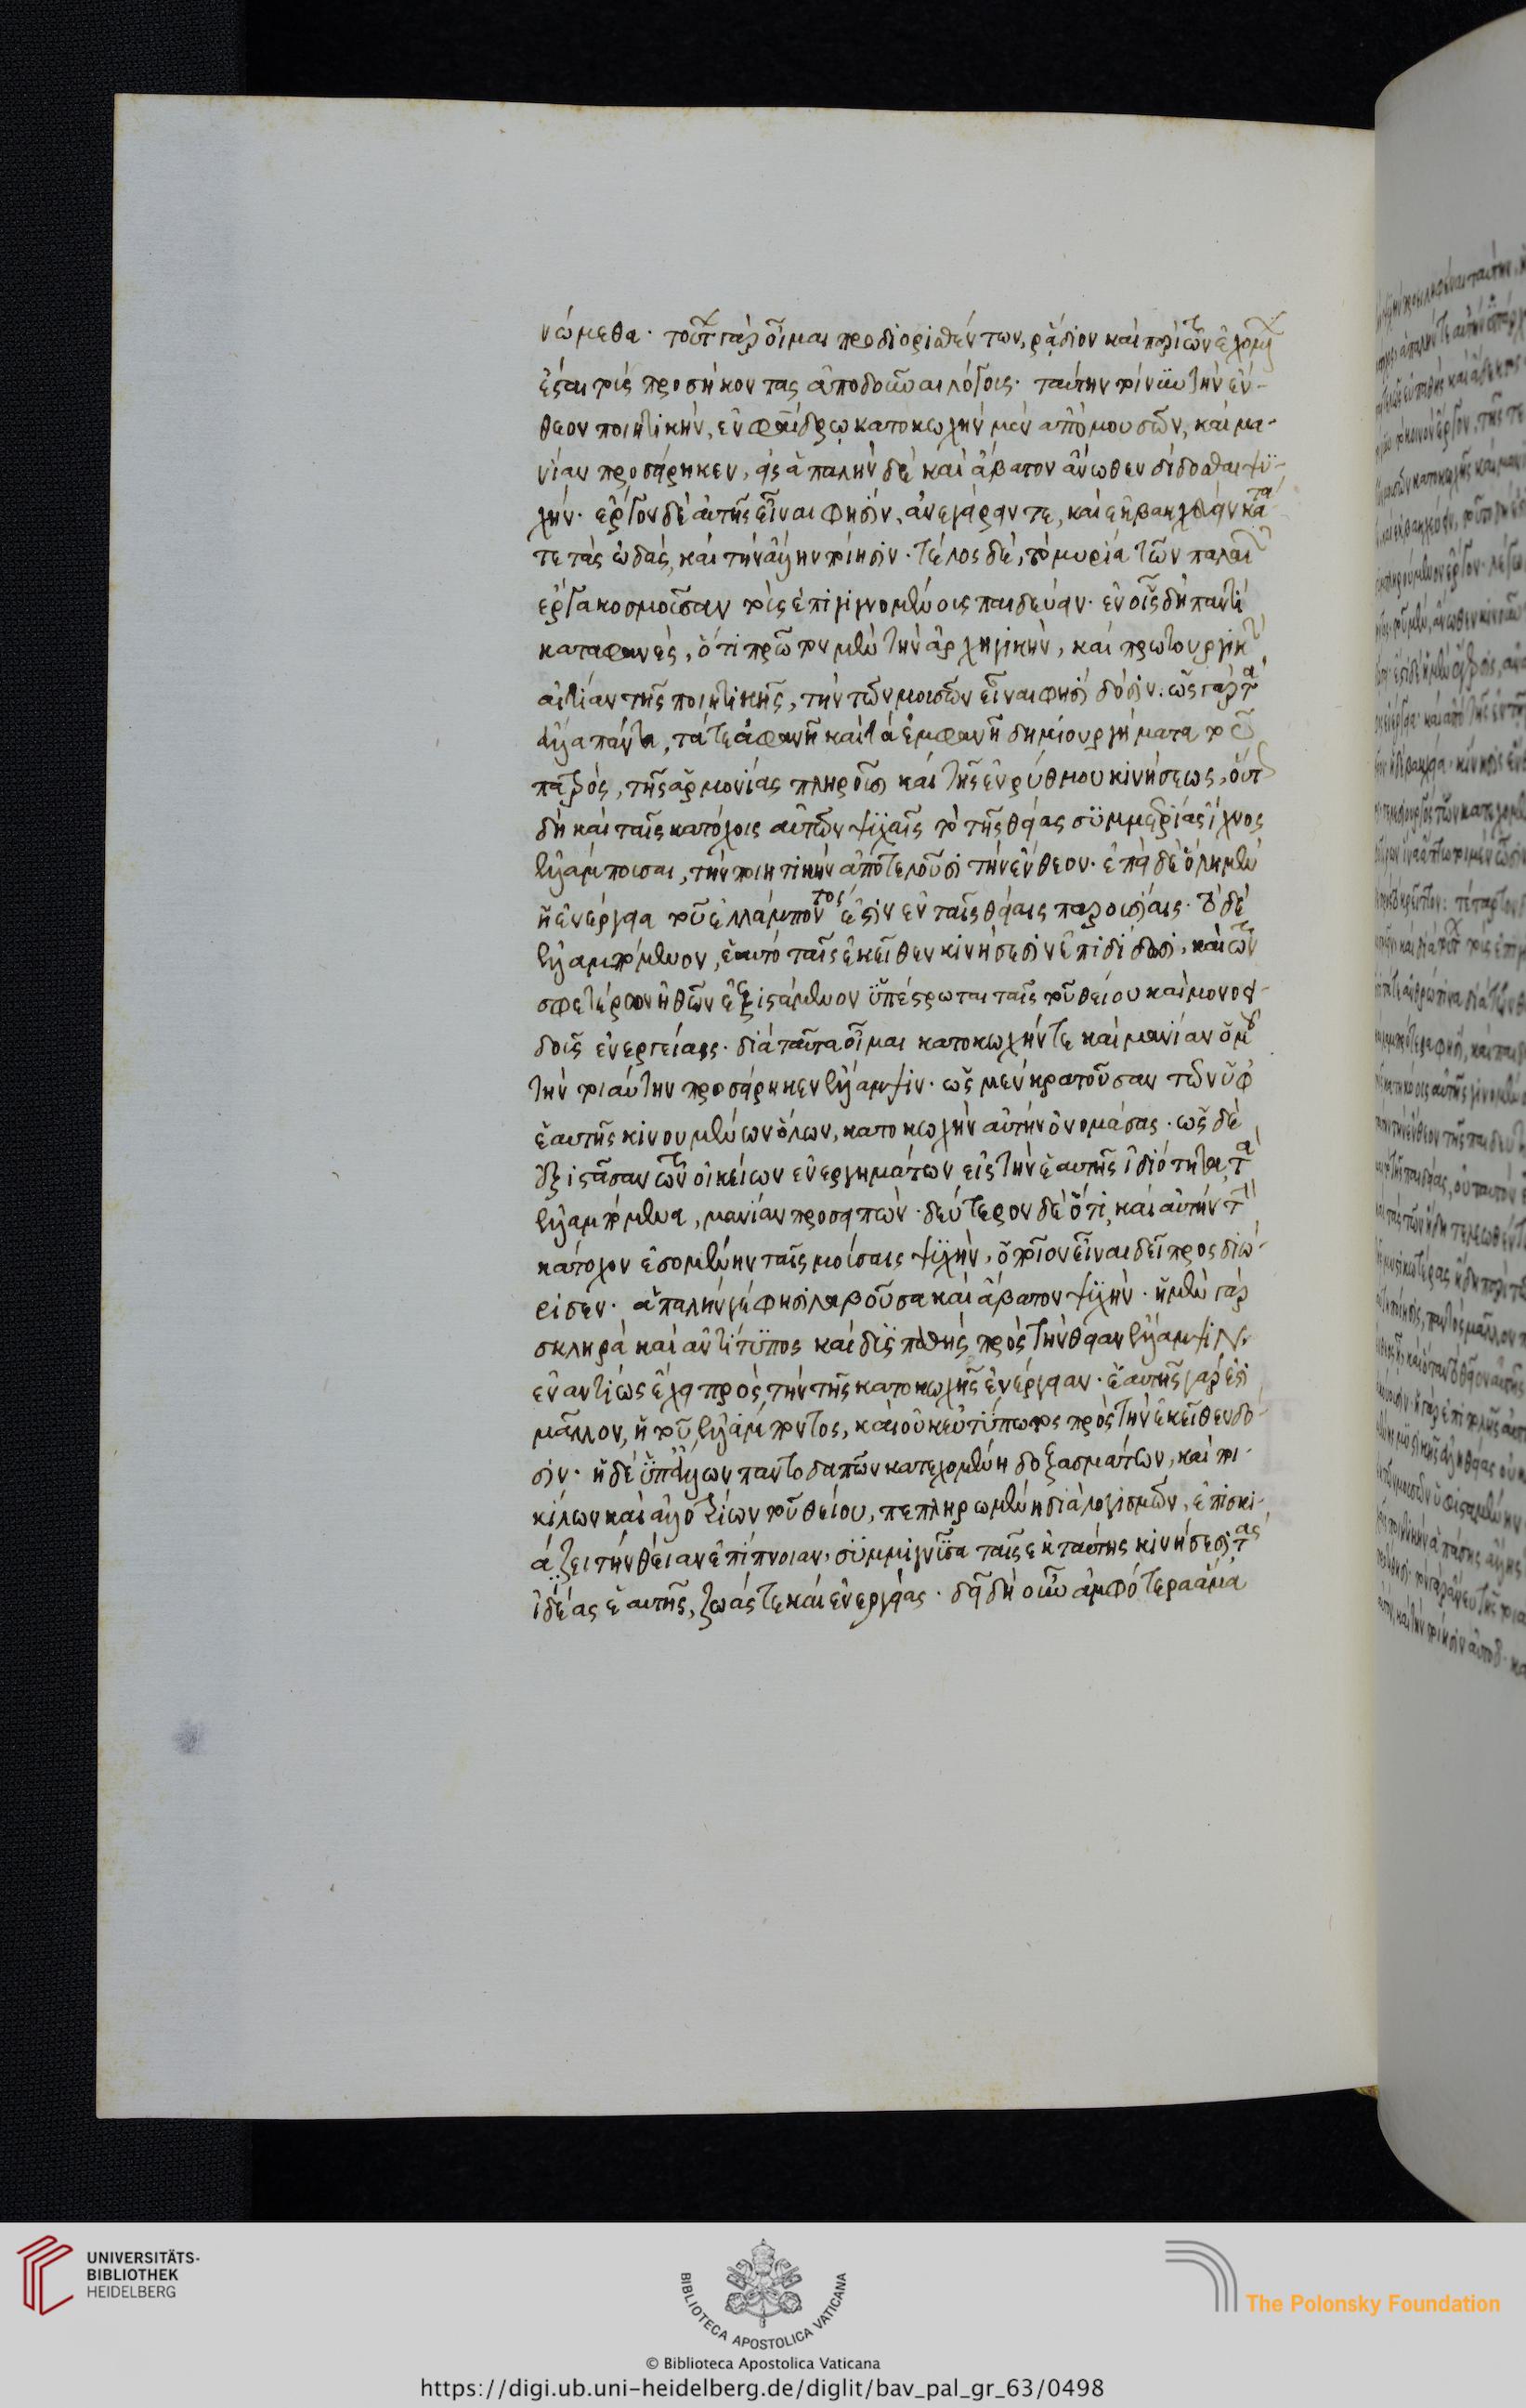 νώμεθα· τούτων γὰρ οἶμαι προδιορισθέντων, ῥᾴδιον καὶ περὶ τῶν ἐχομένων
ἔσται τοὺς προσήκοντας ἀποδοῦναι λόγους· ταύτην τοίνυν τὴν ἔν-
θεον ποιητικὴν, ἐν φαίδρῳ κατοκωχὴν μὲν ἀπὸ μουσῶν, καὶ μα-
νίαν προσείρηκεν, εἰς ἁπαλὴν δὲ καὶ ἄβατον ἄνωθεν δίδοσθαι ψυ-
χήν· ἔργον δὲ αὐτῆς εἶναι φησὶν, ἀνεγείρειν τε, καὶ ἐκβακχεύειν κατά
τε τὰς ᾠδὰς, καὶ τὴν ἄλλην ποίησιν· τέλος δὲ, τὸ μυρία τῶν παλαιῶν
ἔργα κοσμοῦσαν τοὺς ἐπιγιγνομένους παιδεύειν· ἐν οἷς δὴ παντὶ
καταφανὲς, ὅτι πρῶτον μὲν τὴν ἀρχηγικὴν, καὶ πρωτουργικὴν
αἰτίαν τῆς ποιητικῆς, τὴν τῶν μουσῶν εἶναι φησὶ δόσιν· ὡς γὰρ τὰ
ἄλλα πάντα, τά τε ἀφανῆ καὶ τὰ ἐμφανῆ δημιουργήματα τοῦ
πατρὸς, τῆς ἁρμονίας πληροῦσι καὶ τῆς ἐνρύθμου κινήσεως, οὕτω
δὴ καὶ ταῖς κατόχοις αὐτῶν ψυχαῖς τὸ τῆς θείας συμμετρίας ἴχνος
ἐλλάμπουσαι, τὴν ποιητικὴν ἀποτελοῦσι τὴν ἔνθεον· ἐπεὶ δὲ ὅλη μὲν
ἡ ἐνέργεια τοῦ ἐλλάμποντος ἐστὶν ἐν ταῖς θείαις παρουσίαις· τὸ δὲ
ἐλλαμπόμενον, ἑαυτὸ ταῖς ἐκεῖθεν κινήσεσιν ἐπιδίδωσι, καὶ τῶν
σφετέρων ἠθῶν ἐξιστάμενον ὑπέστρωται ταῖς τοῦ θείου καὶ μονοει-
δοῦς ἐνεργείαις· διὰ ταῦτα οἶμαι κατοκωχήν τε καὶ μανίαν ὁμοῦ
τὴν τοιαύτην προσείρηκεν ἔλλαμψιν· ὡς μὲν κρατοῦσαν τῶν ὑφ'
ἑαυτῆς κινουμένων ὅλων, κατοκωχὴν αὐτὴν ὀνομάσας· ὡς δὲ
ἐξιστᾶσαν τῶν οἰκείων ἐνεργημάτων εἰς τὴν ἑαυτῆς ἰδιότητα, τὰ
ἐλλαμπόμενα, μανίαν προσειπών· δεύτερον δὲ ὅτι, καὶ αὐτὴν τὴν
κάτοχον ἐσομένην ταῖς μούσαις ψυχὴν, ὁποῖον εἶναι δεῖ προσδιώ-
ρισεν· ἁπαλὴν γέ φησι λαβοῦσα καὶ ἄβατον ψυχήν· ἡ μὲν γὰρ
σκληρὰ καὶ ἀντίτυπος καὶ δυσπαθὴς πρὸς τὴν θείαν ἔλλαμψιν.
ἐναντίως ἔχει πρὸς τὴν τῆς κατοκωχῆς ἐνέργειαν· ἑαυτῆς γάρ ἐστι
μᾶλλον, ἢ τοῦ ἐλλάμποντος, καὶ οὐκ εὐτύπωτος πρὸς τὴν ἐκεῖθεν δό-
σιν· ἡ δὲ ὑπ' ἄλλων παντοδαπῶν κατεχομένη δοξασμάτων, καὶ ποι-
κίλων καὶ ἀλλοτρίων τοῦ θείου, πεπληρωμένη διαλογισμῶν, ἐπισκι-
άζει τὴν θείαν ἐπίπνοιαν, συμμιγνῦσα ταῖς ἐκ ταύτης κινήσεσι, τὰς
ἰδέας ἑαυτῆς, ζωάς τε καὶ ἐνεργείας· δεῖ δὴ οὖν ἀμφότερα ἅμα
UNIVERSITÄTS-
BIBLIOTHEK
HEIDELBERG
BIBLIOTECA APOSTOLICA VATICANA
The Polonsky Foundation
© Biblioteca Apostolica Vaticana
https://digi.ub.uni-heidelberg.de/diglit/bav_pal_gr_63/0498